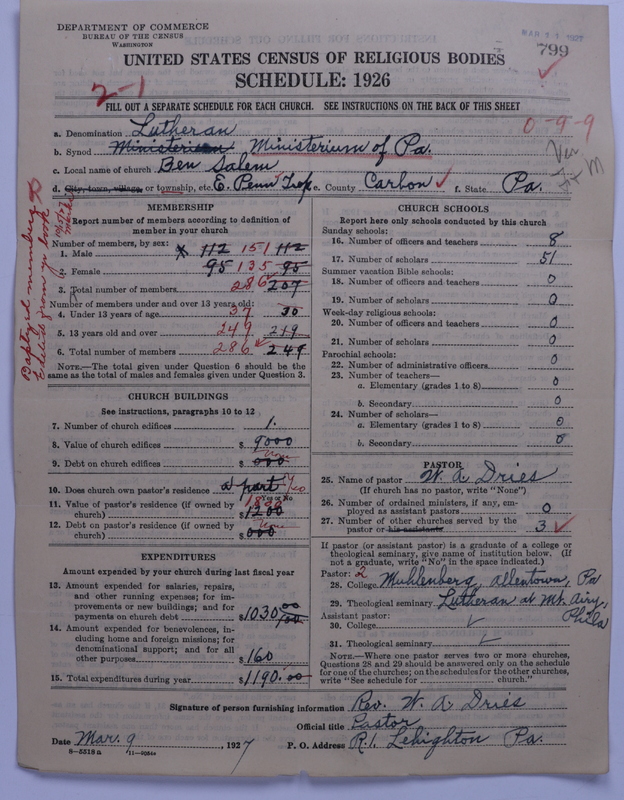 DEPARTMENT OF COMMERCE
BUREAU OF THE CENSUS
WASHINGTON
MAR 11 1927
799
UNITED STATES CENSUS OF RELIGIOUS BODIES
SCHEDULE: 1926
2-1
FILL OUT A SEPARATE SCHEDULE FOR EACH CHURCH. SEE INSTRUCTIONS ON THE BACK OF THIS SHEET
0-9-9
a. Denomination Lutheran
b. Synod Ministerium of Pa.
c. Local name of church Ben Salem
d. City, town, village, or township, etc. E. Penn Twp e. County Carbon f. State Pa.
MEMBERSHIP
Report number of members according to definition of member in your church
Number of members, by sex:
1. Male 112 151 112
2. Female 95 135 95
3. Total number of members 286 207
Number of members under and over 13 years old:
4. Under 13 years of age 37 30
5. 13 years old and over 249 219
6. Total number of members 286 249
NOTE.—The total given under Question 6 should be the same as the total of males and females given under Question 3.
CHURCH BUILDINGS
See instructions, paragraphs 10 to 12
7. Number of church edifices 1.
8. Value of church edifices $ 9000
9. Debt on church edifices $ 000 None
10. Does church own pastor's residence a part
Yes or No
11. Value of pastor's residence (if owned by church) $ 1200
12. Debt on pastor's residence (if owned by church) $ 000 None
EXPENDITURES
Amount expended by your church during last fiscal year
13. Amount expended for salaries, repairs, and other running expenses; for improvements or new buildings; and for payments on church debt $ 1030 00/100
14. Amount expended for benevolences, including home and foreign missions; for denominational support; and for all other purposes $ 160
15. Total expenditures during year $ 1190.00
CHURCH SCHOOLS
Report here only schools conducted by this church
Sunday schools:
16. Number of officers and teachers 8
17. Number of scholars 51
Summer vacation Bible schools:
18. Number of officers and teachers 0
19. Number of scholars 0
Week-day religious schools:
20. Number of officers and teachers 0
21. Number of scholars 0
Parochial schools:
22. Number of administrative officers 0
23. Number of teachers—
a. Elementary (grades 1 to 8) 0
b. Secondary 0
24. Number of scholars—
a. Elementary (grades 1 to 8) 0
b. Secondary 0
PASTOR
25. Name of pastor W. A. Dries
(If church has no pastor, write "None")
26. Number of ordained ministers, if any, employed as assistant pastors 0
27. Number of other churches served by the pastor or his assistants 3
If pastor (or assistant pastor) is a graduate of a college or theological seminary, give name of institution below. (If not a graduate, write "No" in the space indicated.)
Pastor: 2
28. College Muhlenberg, Allentown, Pa
29. Theological seminary Lutheran at Mt. Airy, Phila
Assistant pastor:
30. College
31. Theological seminary
NOTE.—Where one pastor serves two or more churches, Questions 28 and 29 should be answered only on the schedule for one of the churches; on the schedules for the other churches, write "See schedule for ........ church."
Signature of person furnishing information Rev. W. A. Dries
Official title Pastor
Date Mar. 9, 1927 P. O. Address R.1, Lehighton Pa.
8-5518 a